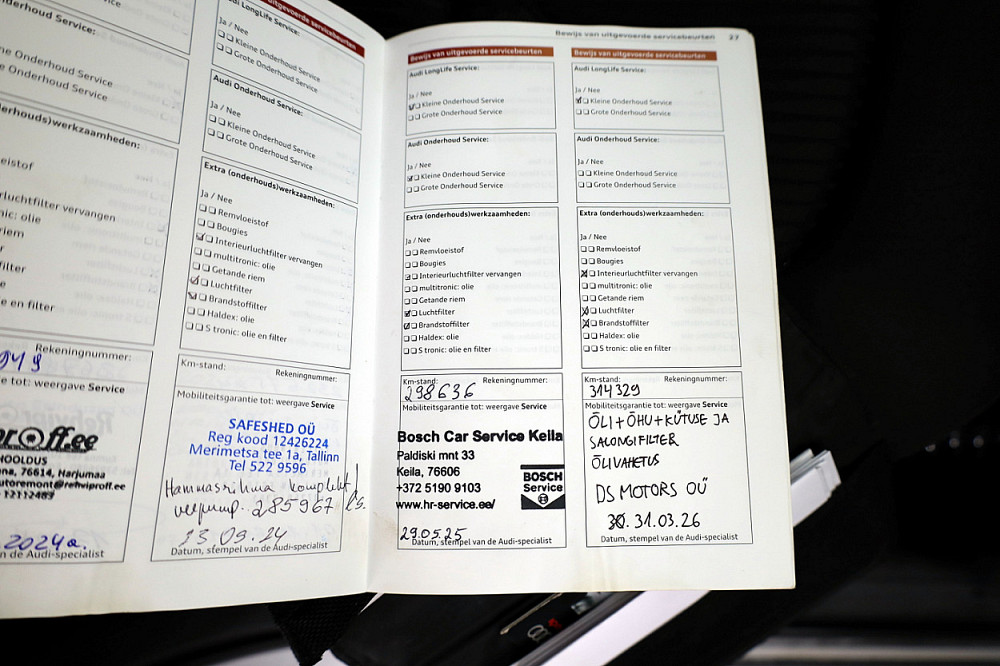 Service:
Onderhoud Service
Onderhoud Service
werkzaamheden:
stof
luchtfilter vervangen
olie
riem
filter
olie en filter
Rekeningnummer:
tot: weergave Service
off.ee
HOOLDUS
76614, Harjumaa
autoremont@rehviproff.ee
2024a.
van de Audi-specialist
Bewijs van uitgevoerde servicebeurten
Audi LongLife Service:
Ja / Nee
Kleine Onderhoud Service
Grote Onderhoud Service
Audi Onderhoud Service:
Ja / Nee
Kleine Onderhoud Service
Grote Onderhoud Service
Extra (onderhouds)werkzaamheden:
Ja / Nee
Remvloeistof
Bougies
Interieurluchtfilter vervangen
multitronic: olie
Getande riem
Luchtfilter
Brandstoffilter
Haldex: olie
S tronic: olie en filter
Km-stand:
Rekeningnummer:
Mobiliteitsgarantie tot: weergave Service
SAFESHED OÜ
Reg kood 12426224
Merimetsa tee 1a, Tallinn
Tel 522 9596
Hammasrihma komplekt,
veepump. 285967
23.09.24
Datum, stempel van de Audi-specialist
Bewijs van uitgevoerde servicebeurten 27
Bewijs van uitgevoerde servicebeurten
Audi LongLife Service:
Ja / Nee
Kleine Onderhoud Service
Grote Onderhoud Service
Audi Onderhoud Service:
Ja / Nee
Kleine Onderhoud Service
Grote Onderhoud Service
Extra (onderhouds)werkzaamheden:
Ja / Nee
Remvloeistof
Bougies
Interieurluchtfilter vervangen
multitronic: olie
Getande riem
Luchtfilter
Brandstoffilter
Haldex: olie
S tronic: olie en filter
Km-stand: Rekeningnummer:
298636
Mobiliteitsgarantie tot: weergave Service
Bosch Car Service Keila
Paldiski mnt 33
Keila, 76606
+372 5190 9103
www.hr-service.ee/
BOSCH
Service
29.05.25
Datum, stempel van de Audi-specialist
Bewijs van uitgevoerde servicebeurten
Audi LongLife Service:
Ja / Nee
Kleine Onderhoud Service
Grote Onderhoud Service
Audi Onderhoud Service:
Ja / Nee
Kleine Onderhoud Service
Grote Onderhoud Service
Extra (onderhouds)werkzaamheden:
Ja / Nee
Remvloeistof
Bougies
Interieurluchtfilter vervangen
multitronic: olie
Getande riem
Luchtfilter
Brandstoffilter
Haldex: olie
S tronic: olie en filter
Km-stand: Rekeningnummer:
314329
Mobiliteitsgarantie tot: weergave Service
ÕLI+ÕHU+KÜTUSE JA
SALONGIFILTER
ÕLIVAHETUS
DS MOTORS OÜ
31.03.26
Datum, stempel van de Audi-specialist